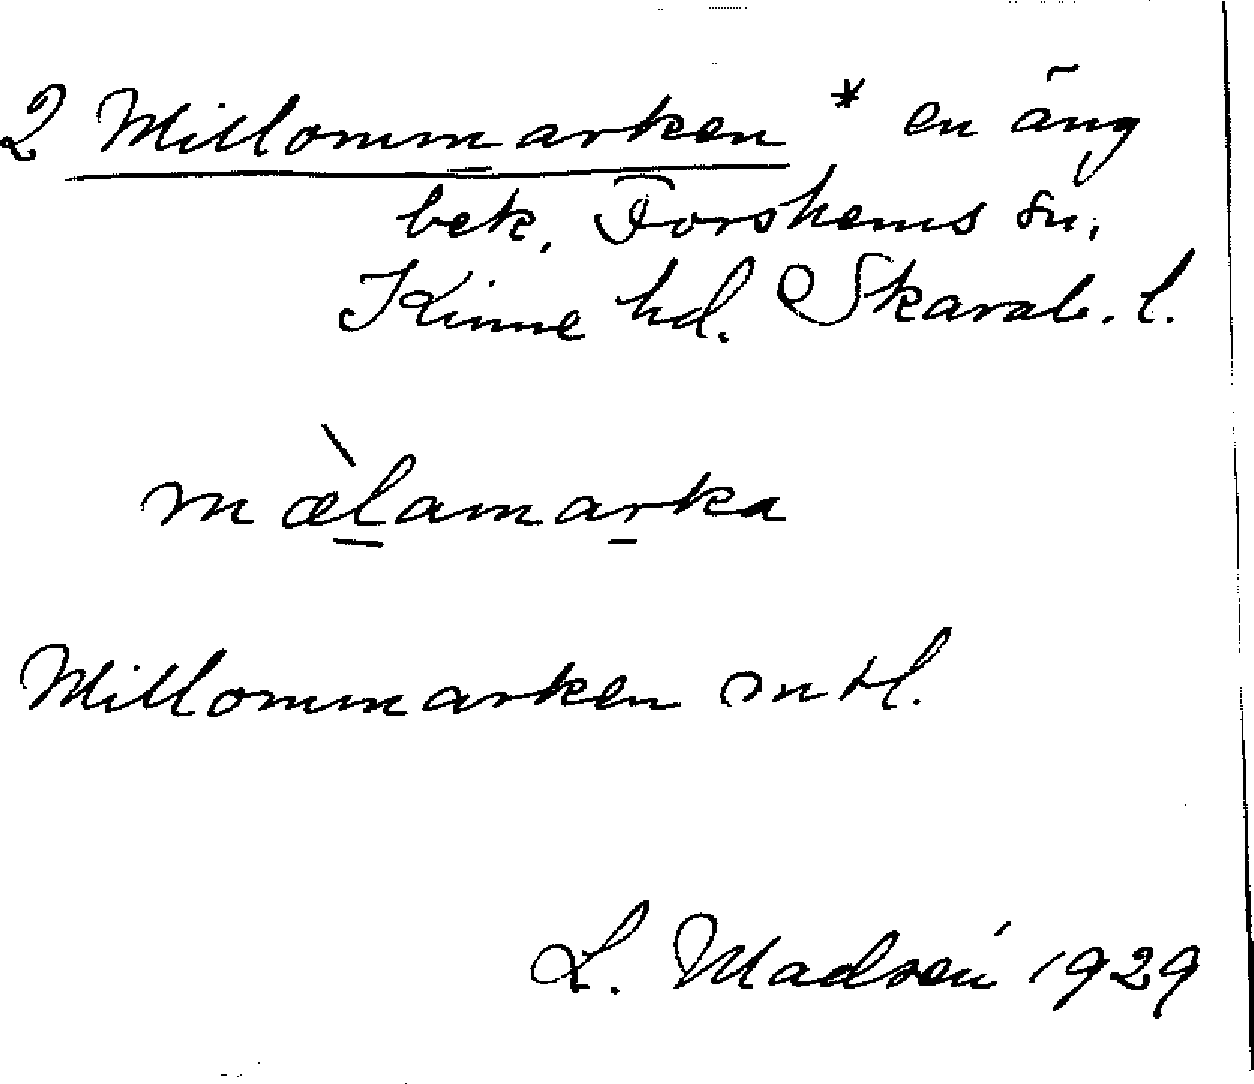 2 Millommarken * en äng
bek. Forshems sn.
Kinne hd. Skarab. l.
mæ̀lamarka
Millommarken mtl.
L. Madsén 1929